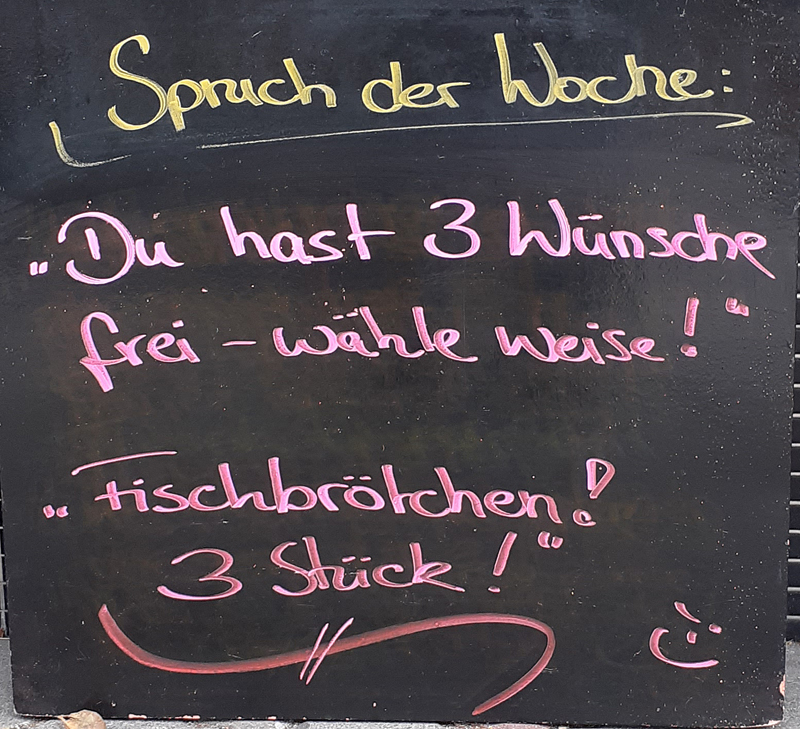 Spruch der Woche:
„Du hast 3 Wünsche
frei – wähle weise!“
„Fischbrötchen!
3 Stück!“